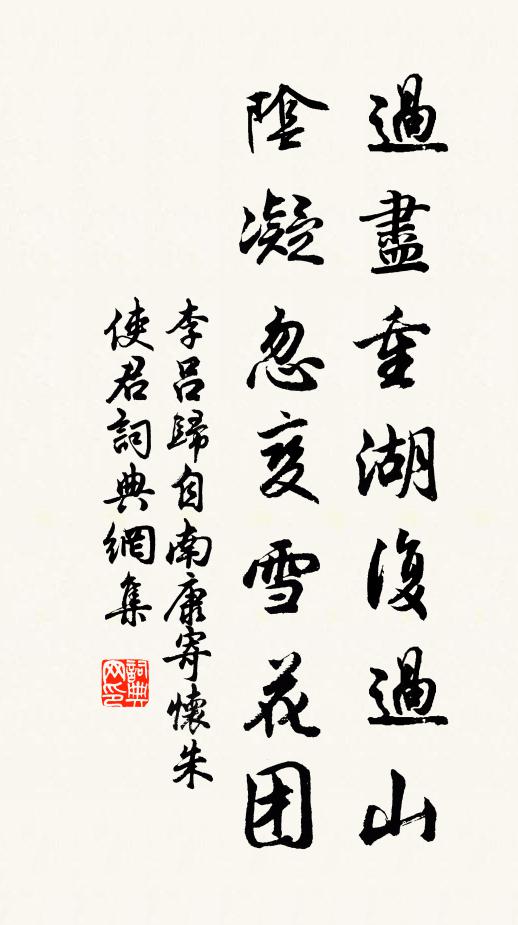 過盡重湖復過山
陰凝忽变雪花团
李吕歸自南康寄懷朱
使君詞典網集
詞典
网印